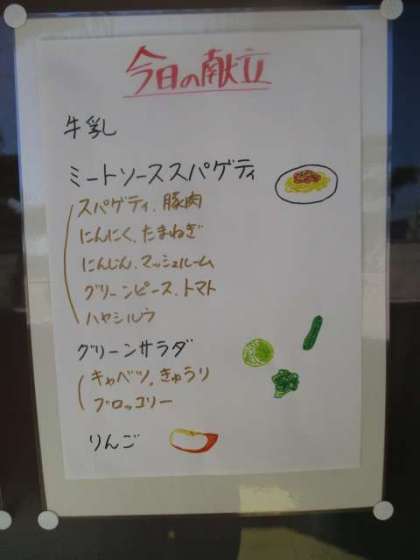 今日の献立
牛乳
ミートソーススパゲティ
スパゲティ、豚肉
にんにく、たまねぎ
にんじん、マッシュルーム
グリーンピース、トマト
ハヤシルウ
グリーンサラダ
キャベツ、きゅうり
ブロッコリー
りんご